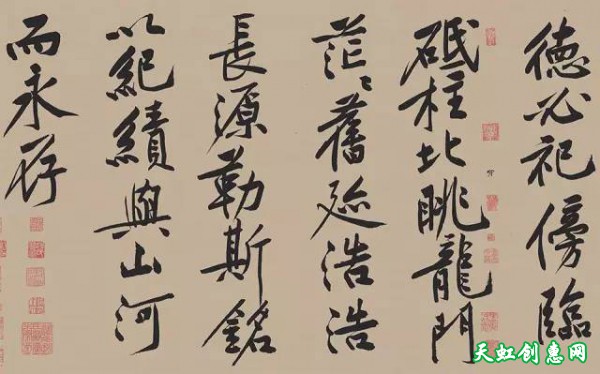 德必祀傍臨
砥柱北眺龍門
茫〻舊迹浩浩
長源勒斯銘
以紀績與山河
而永存
天虹创惠网